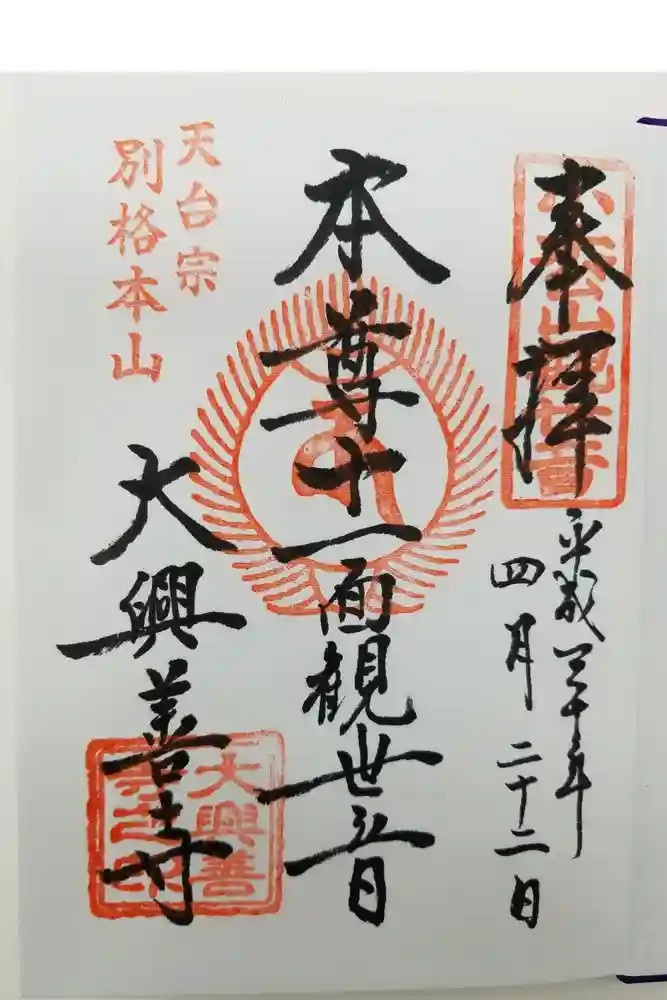 奉拜
平成三十年
四月二十二日
本尊十一面観世音
天台宗
別格本山
大興善寺
大興善
寺之印